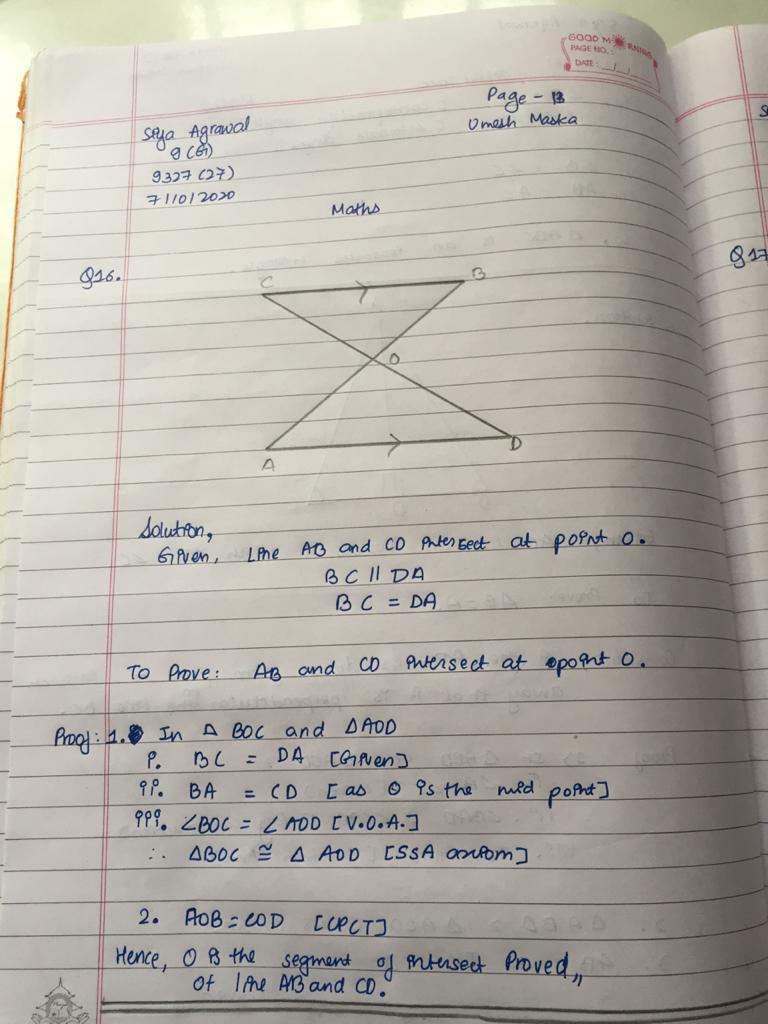 GOOD MORNING
PAGE NO.:
DATE: __/__/__
Page - 13
Siya Agrawal
Umesh Maska
9 (G)
9327 (27)
7/10/2020
Maths
Q16.
Q17
C
B
O
A
D
Solution,
Given, Line AB and CD intersect at point O.
BC || DA
BC = DA
To Prove: AB and CD intersect at point O.
Proof: 1. In △ BOC and △AOD
i. BC = DA [Given]
ii. BA = CD [as O is the mid point]
iii. ∠BOC = ∠AOD [V.O.A.]
∴ △BOC ≅ △ AOD [SSA axiom]
2. AOB = COD [CPCT]
Hence, O is the segment of intersect Proved,,
of line AB and CD.